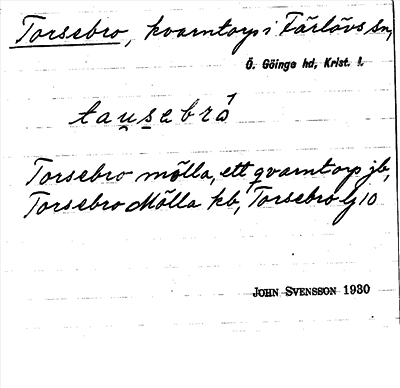 Torsebro, kvarntorp i Färlövs sn,
Ö. Göinge hd, Krist. l.
tau̯sebrǻ
Torsebro mölla, ett qvarntorp jb,
Torsebro Mölla kb, Torsebro Gj 10
JOHN SVENSSON 1930